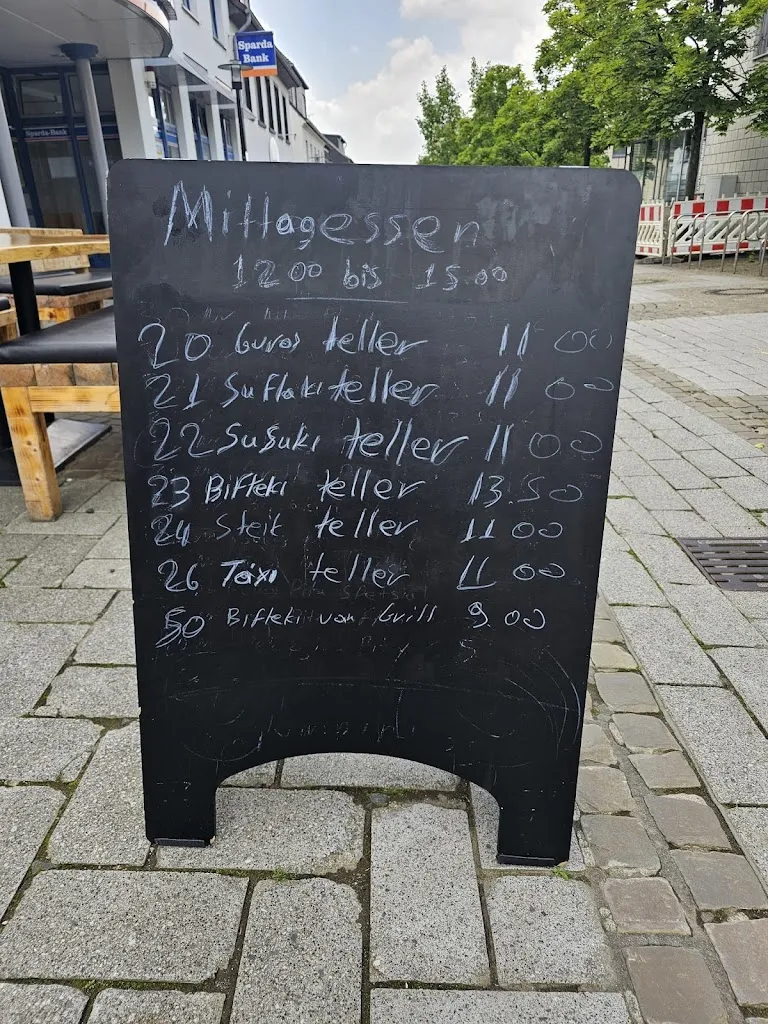 Sparda
Bank
Sparda-Bank
Mittagessen
12 00 bis 15.00
20 Guros teller 11 00
21 Suflaki teller 11 00
22 Susuki teller 11 00
23 Bifteki teller 13.50
24 Steik teller 11 00
26 Taxi teller 11 00
50 Bifteki von Grill 9.00